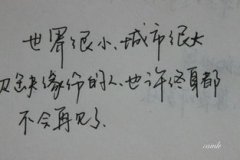 世界很小、城市很大
又缺缘份的人、也许终身都
不会再见了.